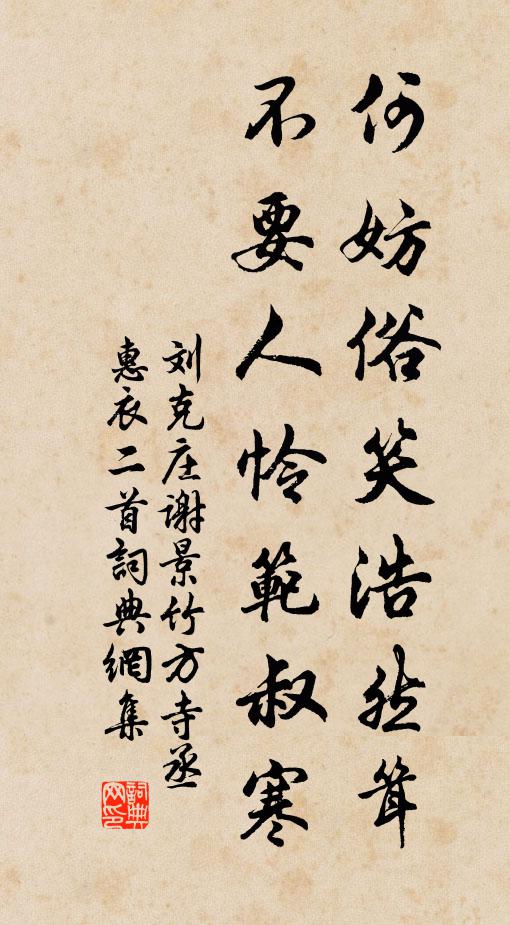 何妨俗笑浩然耸
不要人怜範叔寒
刘克庄谢景竹方寺丞
惠衣二首詞典網集
詞典网印